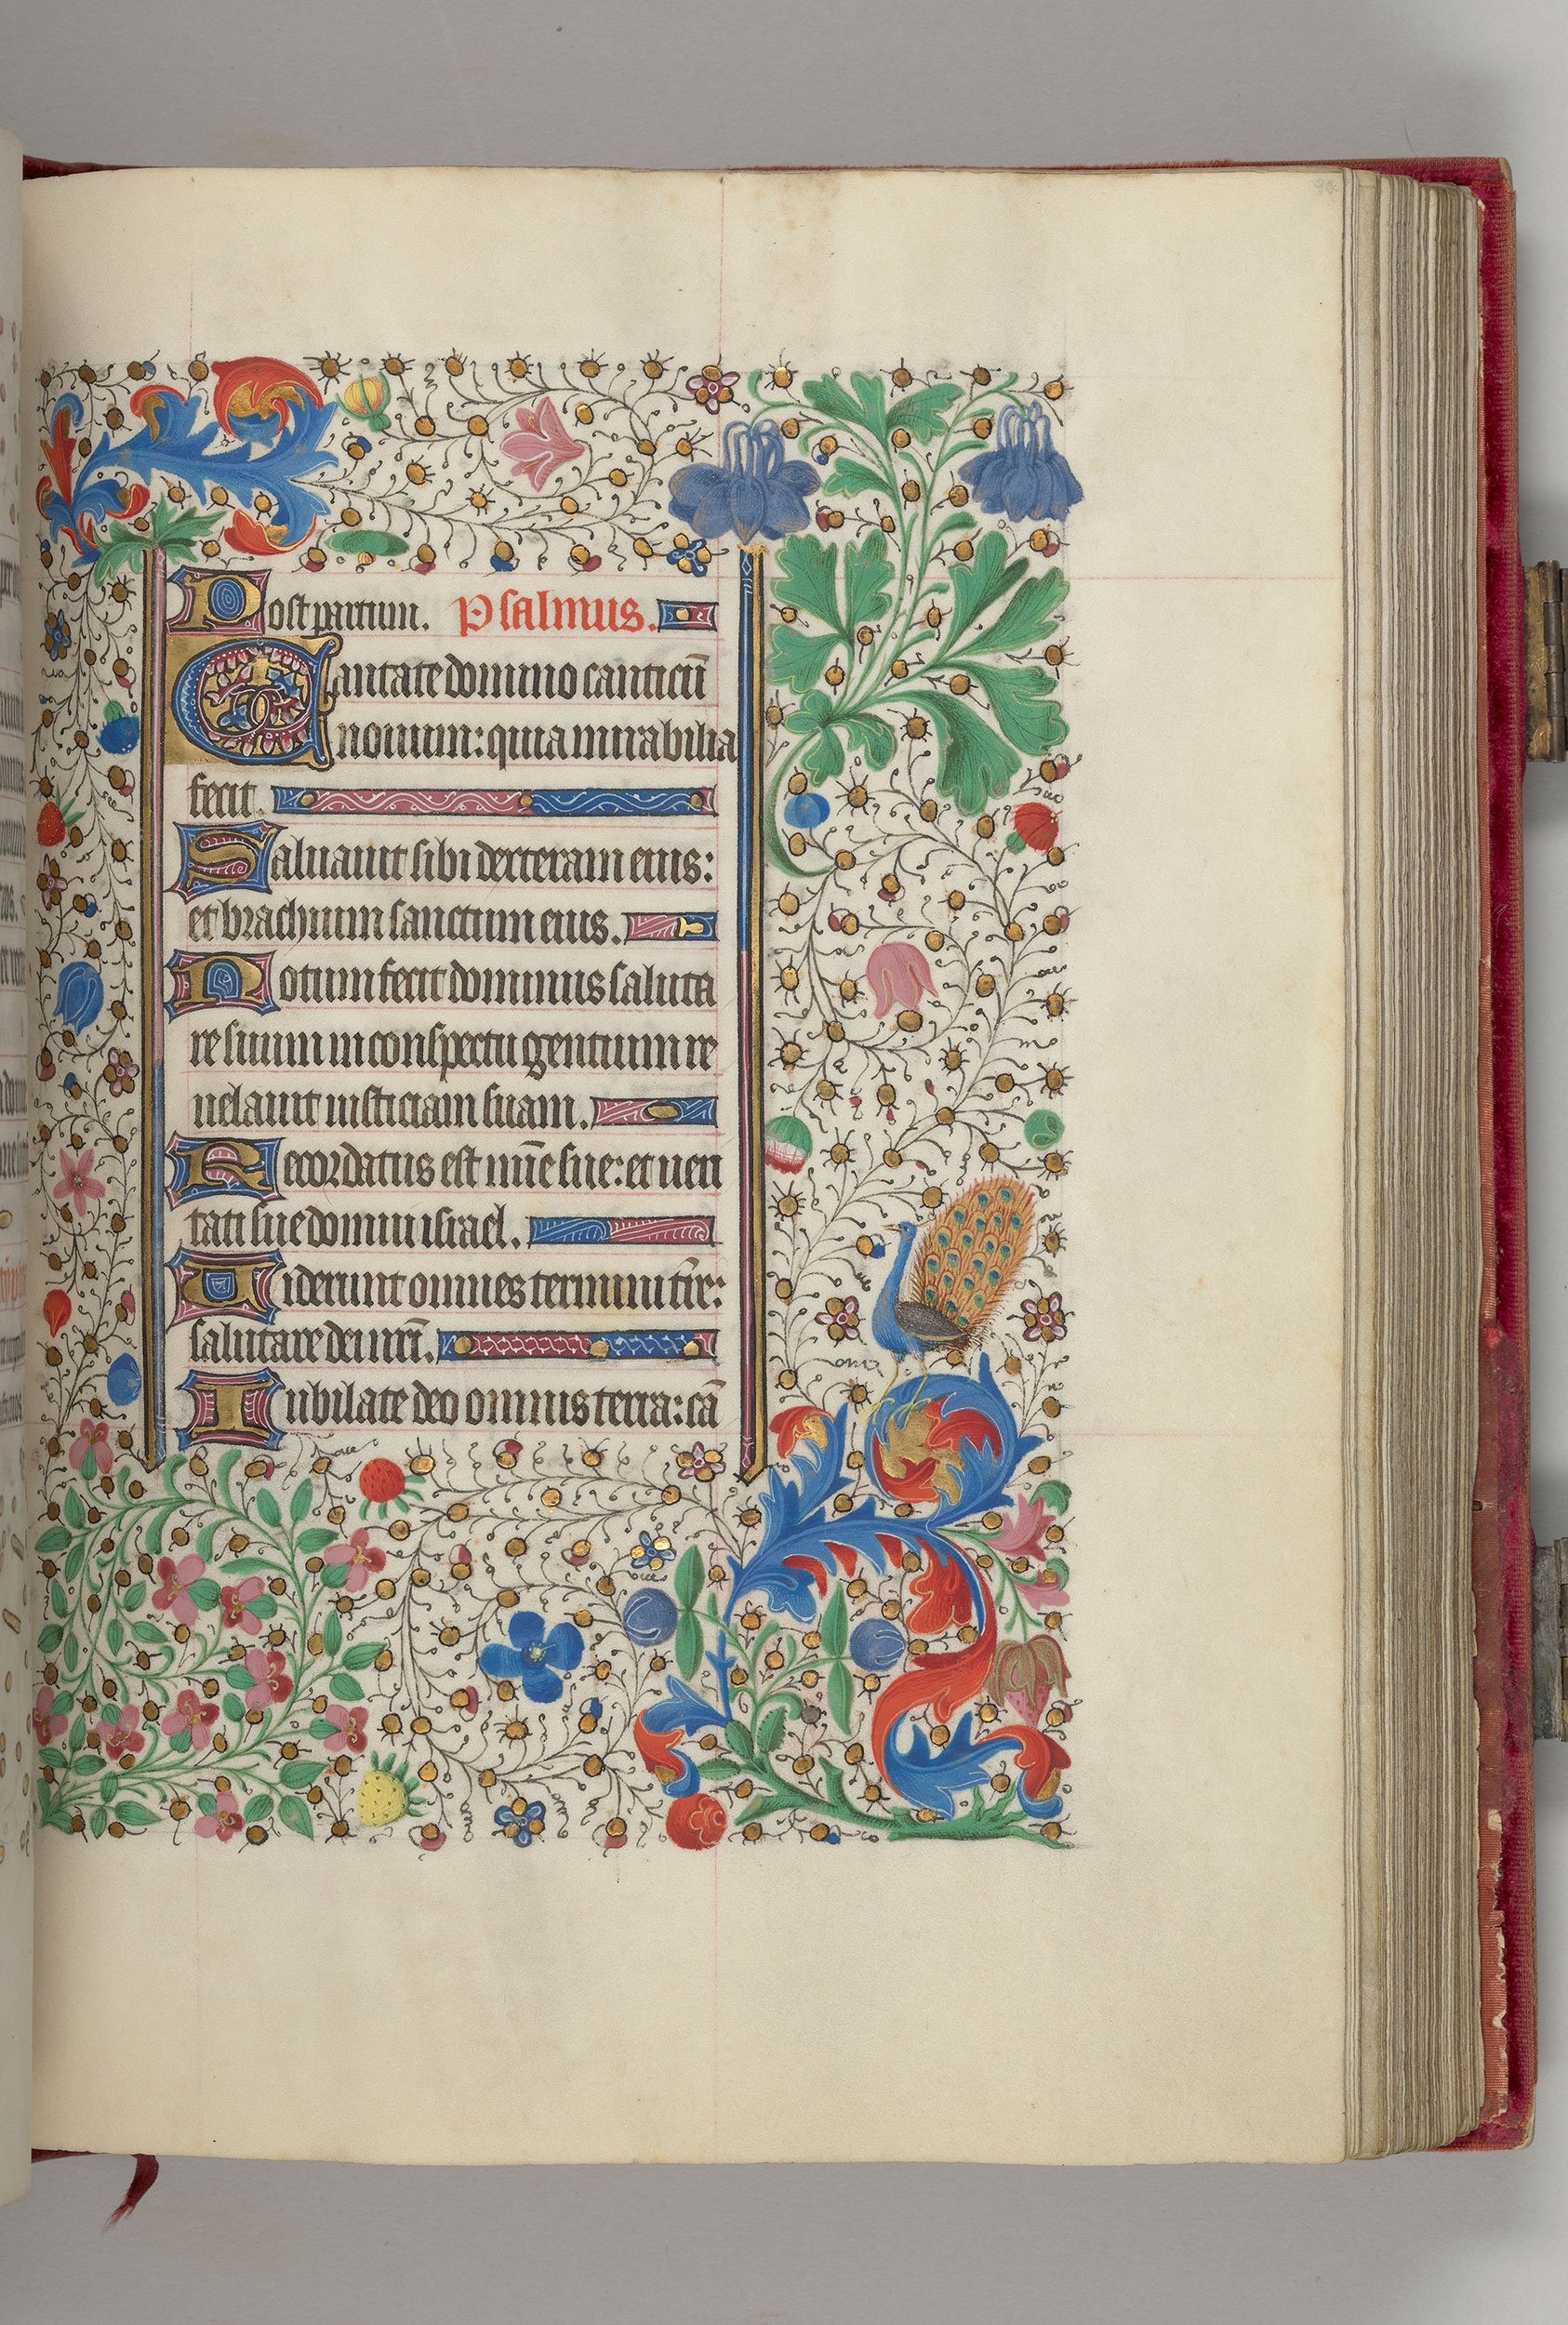 Post partum. Psalmus.
Cantate domino canticū
nouum: quia mirabilia
fecit.
Saluauit sibi dextera̅m eius:
et brachium sanctum eius.
Notum fecit dominus saluta
re suum in conspectu gentium re
uelauit iusticiam suam.
Recordatus est mīe sue: et ueri
tati sue domui israel.
Uiderunt omnes termini tr̄e:
salutare dei nr̄i.
Iubilate deo omnis terra: cā